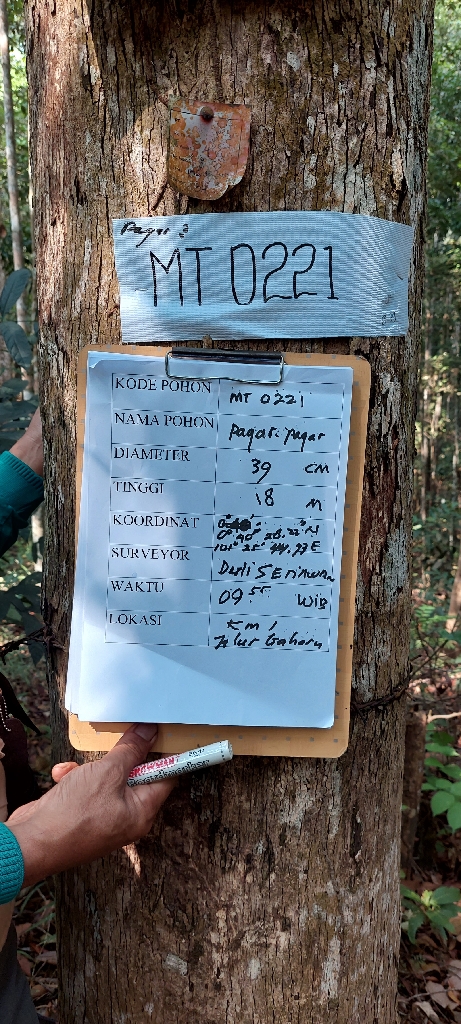 Pagar 2
MT 0221
KODE POHON MT 0221
NAMA POHON Pagar-pagar
DIAMETER 39 CM
TINGGI 18 M
KOORDINAT
101° 25' 44.73 E
SURVEYOR
WAKTU 09 55 WIB
LOKASI KM 1
Alur Gaharu